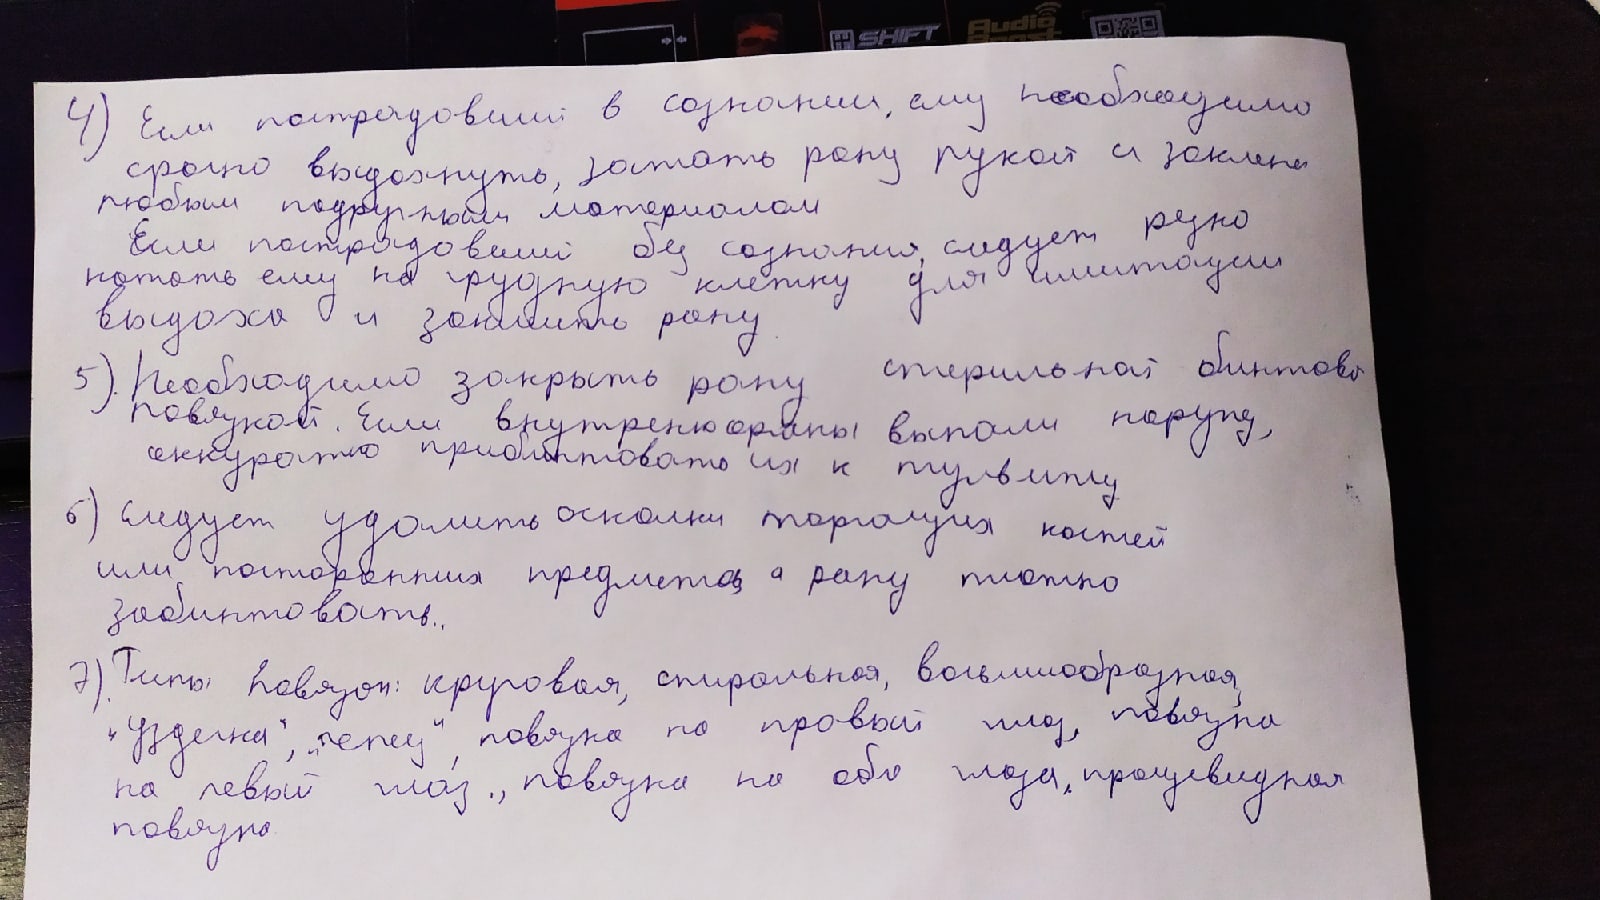 SHIFT
Audio
Boost
4) Если пострадовший в сознании, ему необходимо
срочно выдохнуть, зажать рану рукой и заклеить
любым подручным материалом
Если пострадовший без сознания, следует резко
нажать ему на грудную клетку для имитации
выдоха и заклеить рану
5). Необходимо закрыть рану стерильной бинтовой
повязкой. Если внутрение органы выпали наружу,
аккуратно прибинтовать их к туловищу
6) Следует удалить осколки торчащих костей
или посторонних предметов, а рану плотно
забинтовать..
7). Типы повязок: круговая, спиральная, восьмиобразная,
"Уздечка", "чепец", повязка на правый глаз, повязка
на левый глаз., повязка на оба глаза, пращевидная
повязка